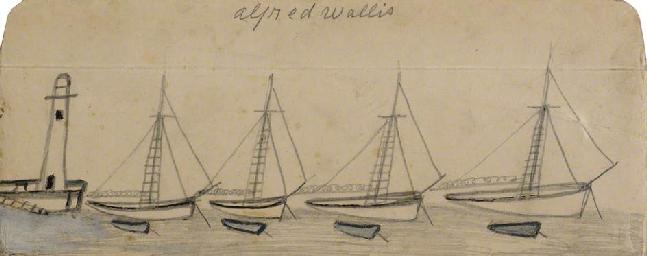 alfred wallis